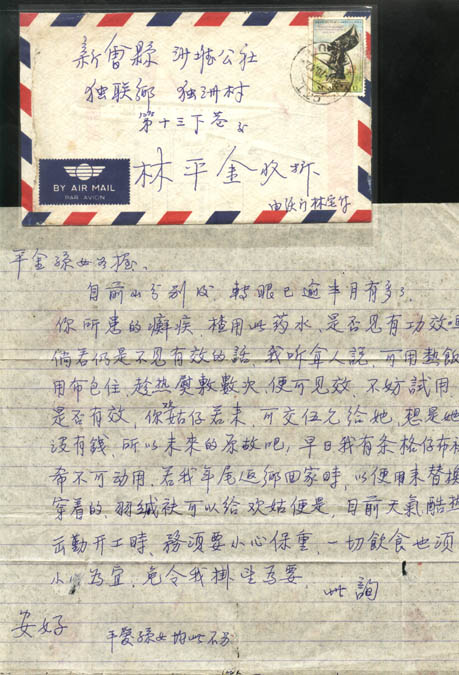 新會縣 沙堆公社
独联鄉 独洲村
第十三下巷
林平金收拆
由澳门林宝
BY AIR MAIL
PAR AVION
平金孫女
目前 分别後,轉眼已逾半月有多了
你所患的癣疾,楂用此药水,是否见有功效
倘若仍是不见有效的話,我听耸人説,可用热飯
用布包住,趁热熨敷數次,便可见效,不妨試用
是否有效,你姑仔若来,可交伍元给她,想是她
没有錢,所以未来的原故吧,早日我有条格仔布
希不可动用,若我年尾返鄉回家時,以便用来替换
穿着的,羽絨 可以给欢姑便是,目前天氣酷热
出勤开工時,務須要小心保重,一切飲食也须
小心为宜,免令我掛 为要
此詢
安好
平爱孫女均此不另